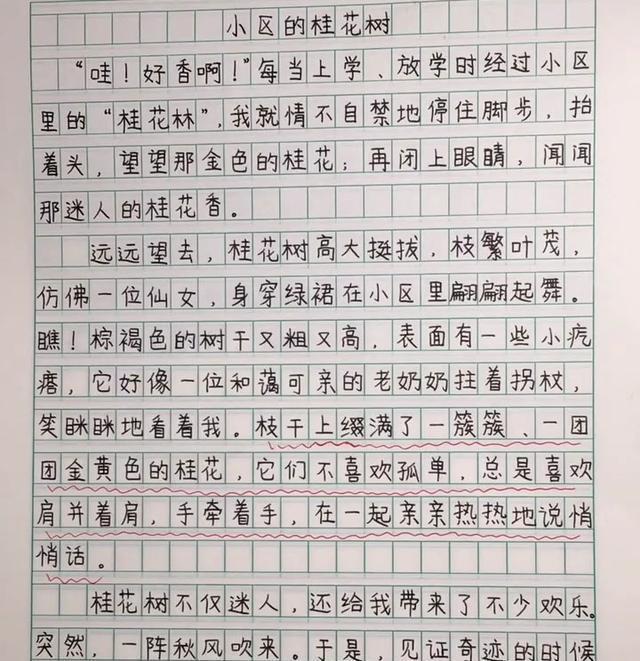 小区的桂花树
“哇！好香啊！”每当上学、放学时经过小区
里的“桂花林”，我就情不自禁地停住脚步，抬
着头，望望那金色的桂花；再闭上眼睛，闻闻
那迷人的桂花香。
远远望去，桂花树高大挺拔，枝繁叶茂，
仿佛一位仙女，身穿绿裙在小区里翩翩起舞。
瞧！棕褐色的树干又粗又高，表面有一些小疙
瘩，它好像一位和蔼可亲的老奶奶拄着拐杖，
笑眯眯地看着我。枝干上缀满了一簇簇、一团
团金黄色的桂花，它们不喜欢孤单，总是喜欢
肩并着肩，手牵着手，在一起亲亲热热地说悄
悄话。
桂花树不仅迷人，还给我带来了不少欢乐。
突然，一阵秋风吹来。于是，见证奇迹的时候